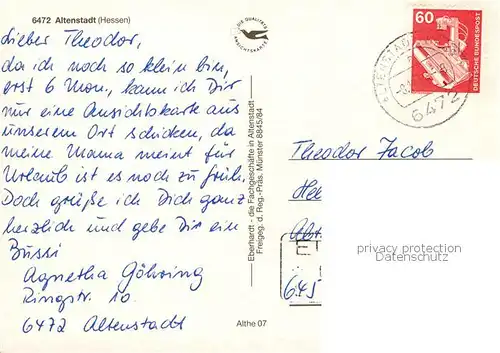 6472 Altenstadt (Hessen)
Lieber Theodor,
da ich noch so klein bin,
erst 6 Mon., kann ich Dir
nur eine Ansichtskarte aus
unserem Ort schicken, da
meine Mama meint für
Urlaub ist es noch zu früh.
Doch grüße ich Dich ganz
herzlich und gebe Dir ein
Bussi
Agnetha Göhring
Ringstr. 10
6472 Altenstadt
Eberhardt - die Fachgeschäfte in Altenstadt
Freigeg. d. Reg.-Präs. Münster 8845/84
Althe 07
60
DEUTSCHE BUNDESPOST
6472
Theodor Jacob
privacy protection
Datenschutz
645